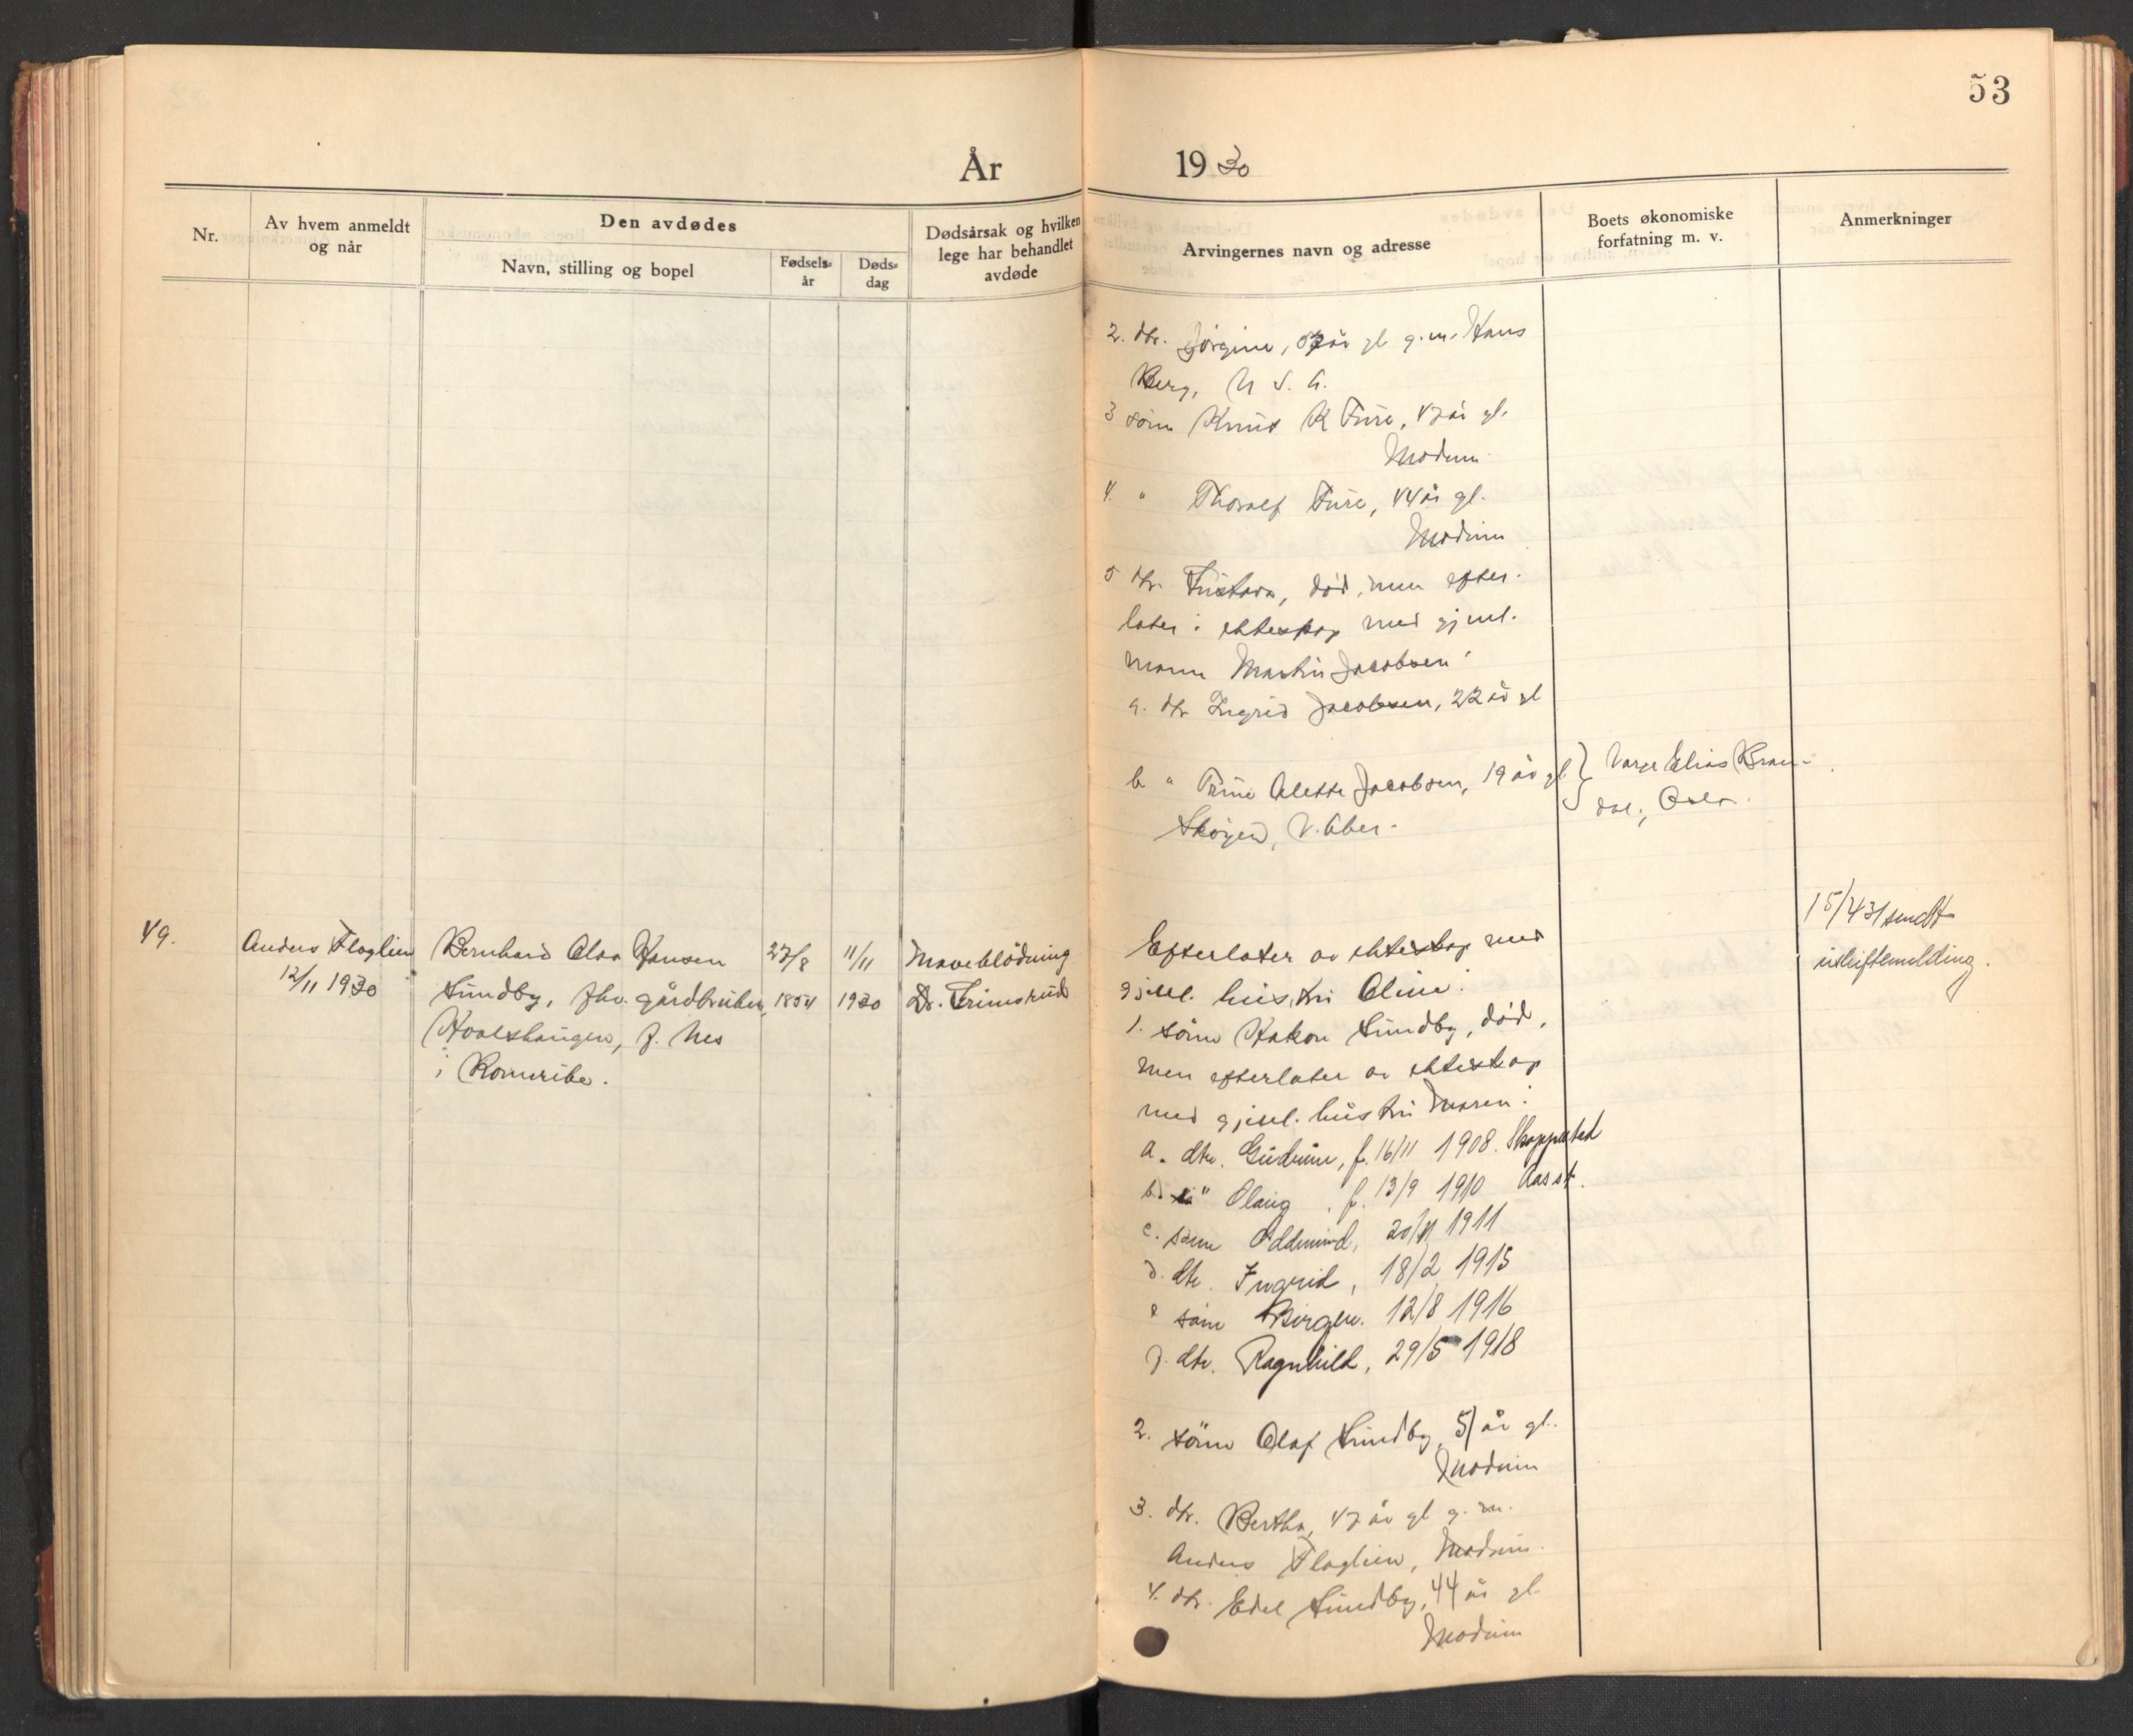 53
År 1930
Nr.
Av hvem anmeldt
og når
Den avdødes
Navn, stilling og bopel
Fødsels-
år
Døds-
dag
Dødsårsak og hvilken
lege har behandlet
avdøde
Arvingernes navn og adresse
Boets økonomiske
forfatning m. v.
Anmerkninger
2. dtr. Jörgine, år gl g.m. Hans
Berg, U. S. A.
3 sönn Knut K Fure, 47 år gl.
Modum
4. " Thoralf Fure, 44 år gl.
Modum
5 dtr. død, men efter-
later i ekteskap med gjenl.
mann Martin Jacobsen:
a. dtr Ingrid Jacobsen, 22 år gl
b " Alette Jacobsen, 19 år gl
V. Aker.
} Verge Elias Bran-
dal, Oslo.
49.
Anders Flaglien
12/11 1930
Bernhard Olaa Hansen
Sundby, fhv. gårdbruker,
f. Nes
i Romerike.
27/8
1854
11/11
1930
Maveblödning
Dr. Frimsrud
Efterlater av ekteskap med
gjenl. hustru Oline:
1. sönn Hakon Sundby, död,
men efterlater av ekteskap
med gjenl. hustru Maren:
a. dtr. Gudrun, f. 16/11 1908. Skoppestad
b. " Olaug, f. 13/9 1910 Aas st.
c. sönn Oddmund, 20/11 1911
d. dtr. Ingrid, 18/2 1915
e sönn Birger. 12/8 1916
f. dtr. Ragnhild, 29/5 1918
2. sönn Olaf Sundby, 51 år gl.
Modum
3. dtr. Bertha, 47 år gl g. m.
Anders Flaglien, Modum.
4. dtr. Edel Sundby, 44 år gl.
Modum
15/4 31 sendt
utskiftemelding.